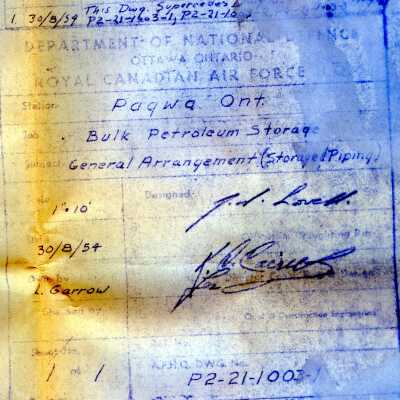 This Dwg. Supercedes
1. 30/8/54 P2-21-1003-1, P2-21-10
DEPARTMENT OF NATIONAL DEFENCE
OTTAWA ONTARIO
ROYAL CANADIAN AIR FORCE
Station Pagwa Ont.
Job Bulk Petroleum Storage
Subject General Arrangement (Storage & Piping)
Designed
1"=10'
30/8/54
by
L. Garrow
Checked by
Chief of Construction Engineering
1 of 1
A.F.H.Q. DWG. No.
P2-21-1003-1